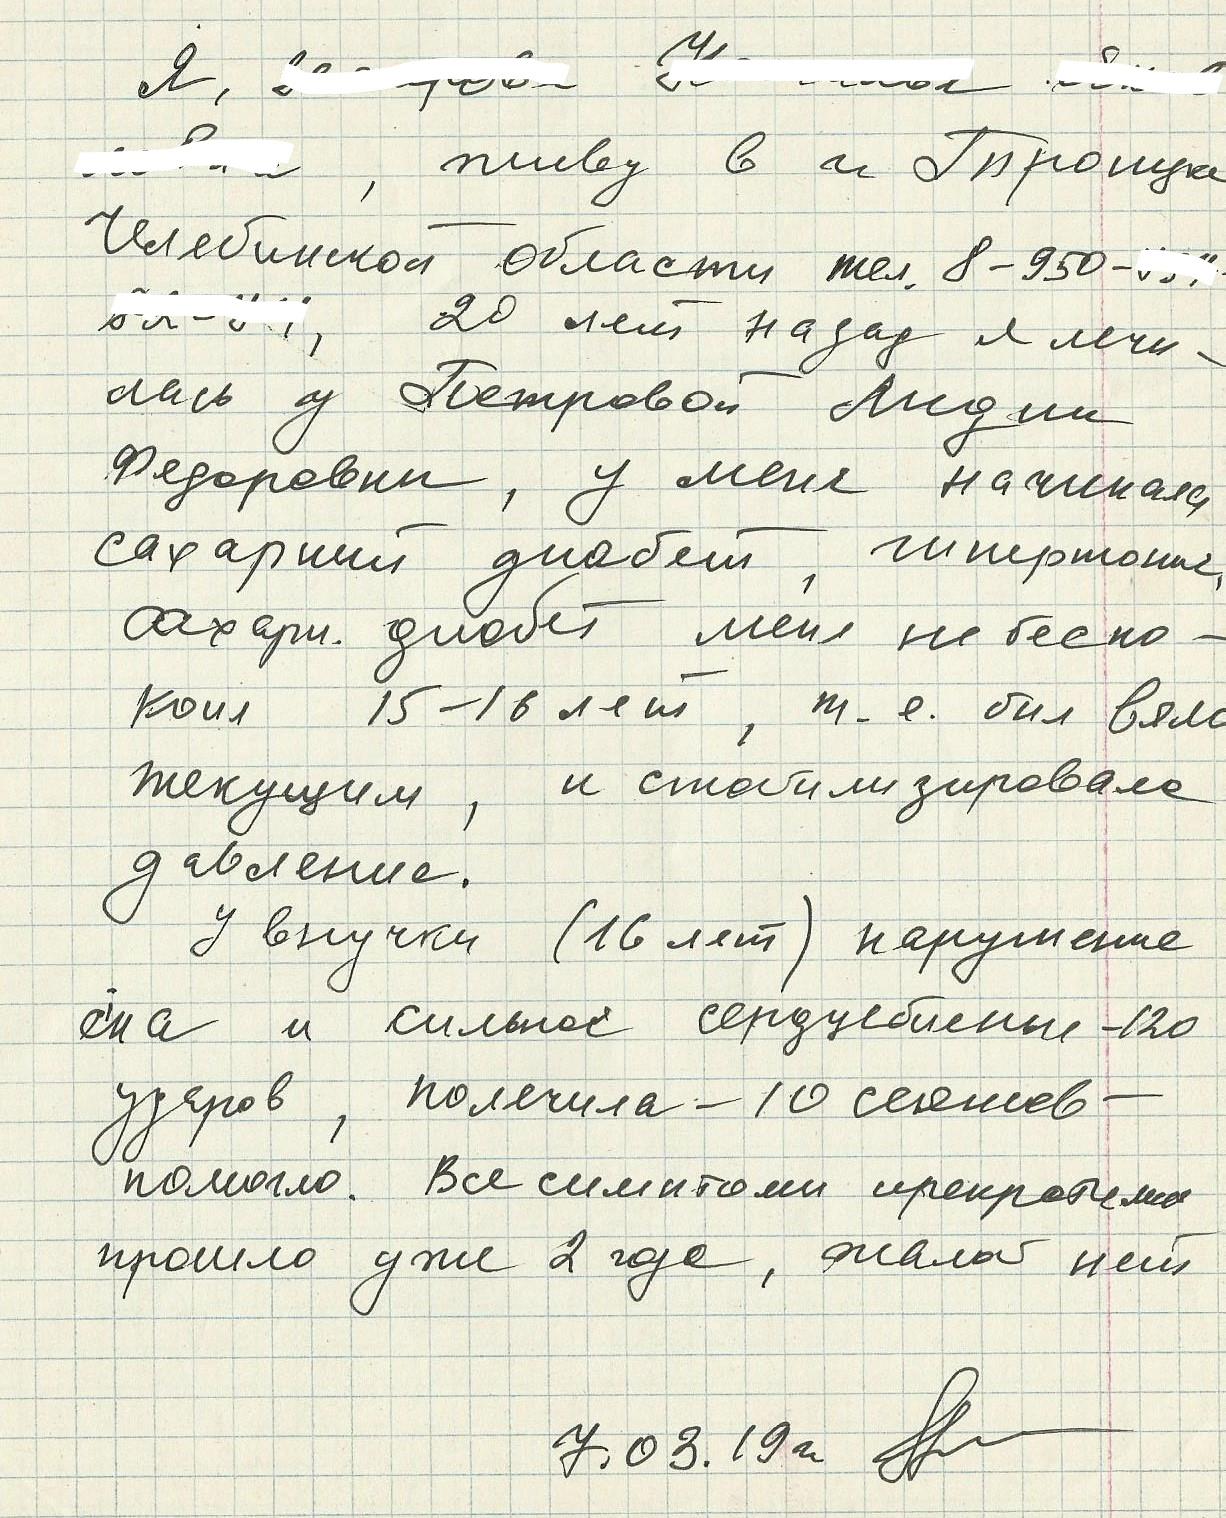 Я,
, живу в г Троицке
Челябинской области тел. 8-950-
, 20 лет назад я лечи-
лась у Петровой Лидии
Федоровны, у меня начинался
сахарный диабет, гипертония,
сахарн. диабет меня не беспо-
коил 15-16 лет, т.е. был вяло
текущим, и стабилизировала
давление.
У внучки (16 лет) нарушение
сна и сильное сердцебиение -120
ударов, полечила - 10 сеансов -
помогло. Все симптомы прекратились
прошло уже 2 года, жалоб нет
7.03.19г